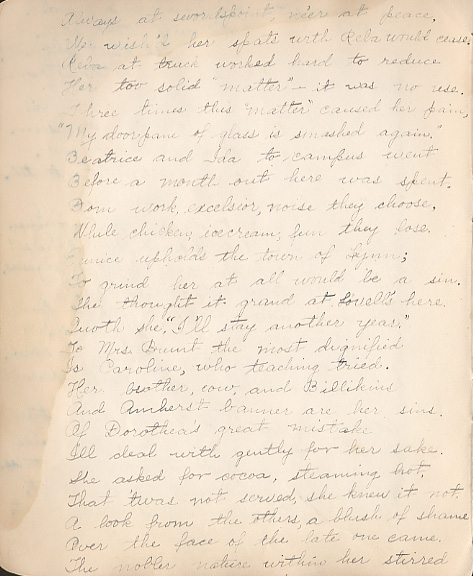 Always at sword's point, ne'er at peace,
We wish'd her spats with Reba would cease;
Reba at truck worked hard to reduce
Her too solid "matter" - it was no use.
Three times this "matter" caused her pain,
"My door pane of glass is smashed again."
Beatrice and Ida to campus went
Before a month out here was spent.
Dorm work, excelsior, noise they choose,
While chicken, icecream, fun they lose.
Eunice upholds the town of Lynn;
To grind her at all would be a sin.
She thought it grand at Lovell's here.
Quoth she, "I'll stay another year."
To Mrs. the most dignified
Is Caroline, who teaching tried.
Her brother, cow, and Billikins
And Amherst banner are her sins.
Of Dorothea's great mistake
I'll deal with gently for her sake.
She asked for cocoa, steaming hot.
That 'twas not served, she knew it not.
A look from the others, a blush of shame
Over the face of the late one came.
The nobler nature within her stirred